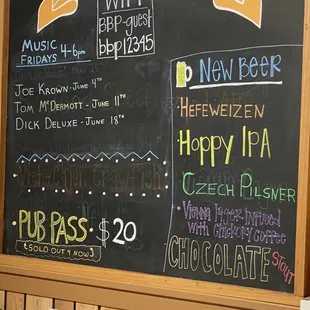 WIFI
BBP-guest
bbp12345
MUSIC
FRIDAYS 4-6pm
JOE KROWN - JUNE 4TH
TOM MCDERMOTT - JUNE 11TH
DICK DELUXE - JUNE 18TH
PUB PASS $20
(SOLD OUT 4 NOW)
NEW BEER
HEFEWEIZEN
HOPPY IPA
CZECH PILSNER
Vienna lager infused
with chickory coffee
CHOCOLATE STOUT